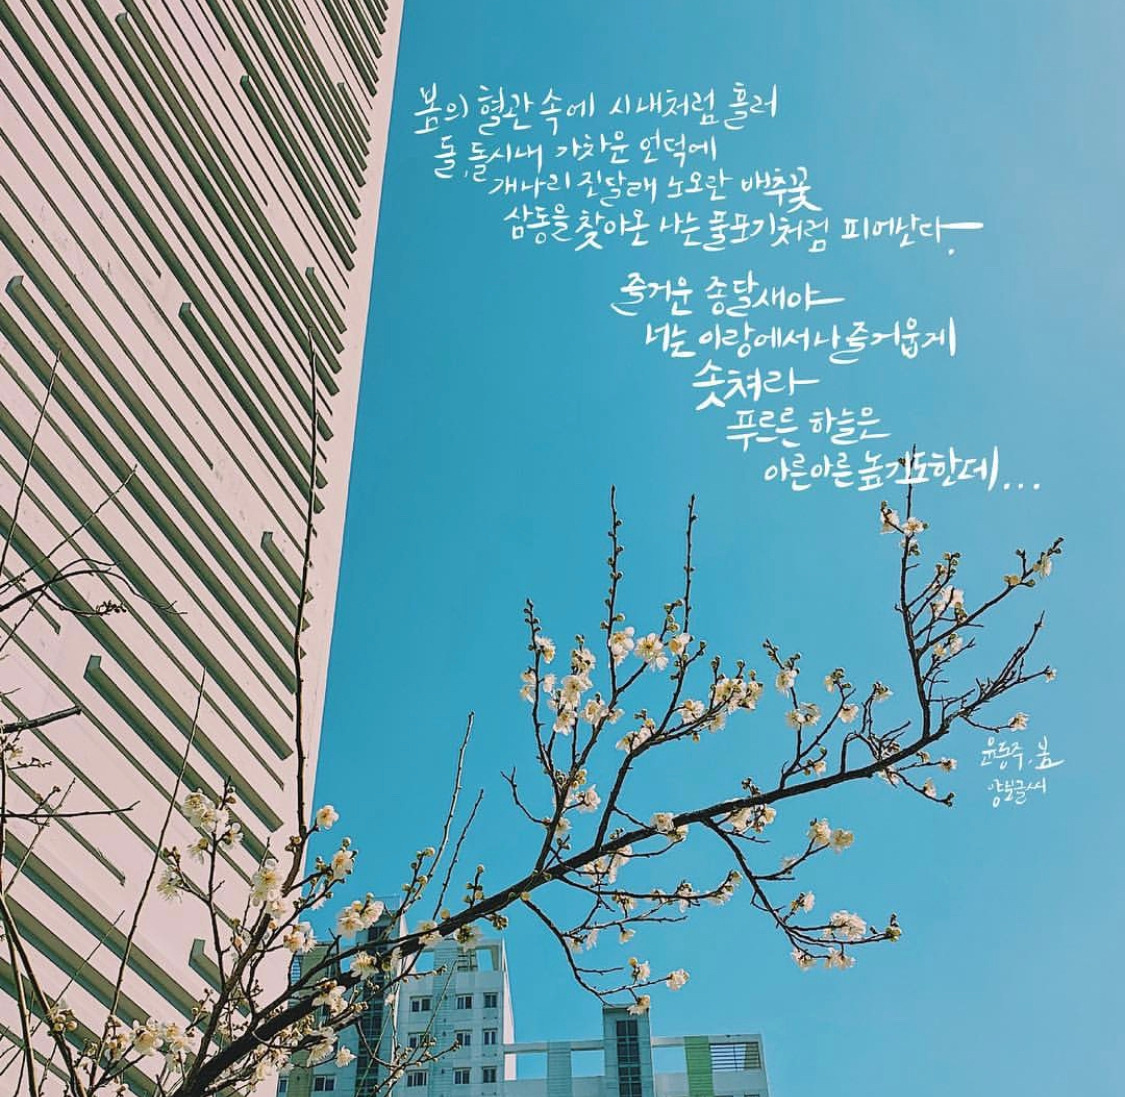 봄의 혈관 속에 시내처럼 흘러
돌, 돌 시내 가차운 언덕에
개나리 진달래 노오란 배추꽃
삼동을 찾아온 나는 풀포기처럼 피어난다.
즐거운 종달새야
너는 이랑에서나 즐거웁게
솟쳐라
푸르른 하늘은
아른아른 높기도한데...
윤동주, 봄